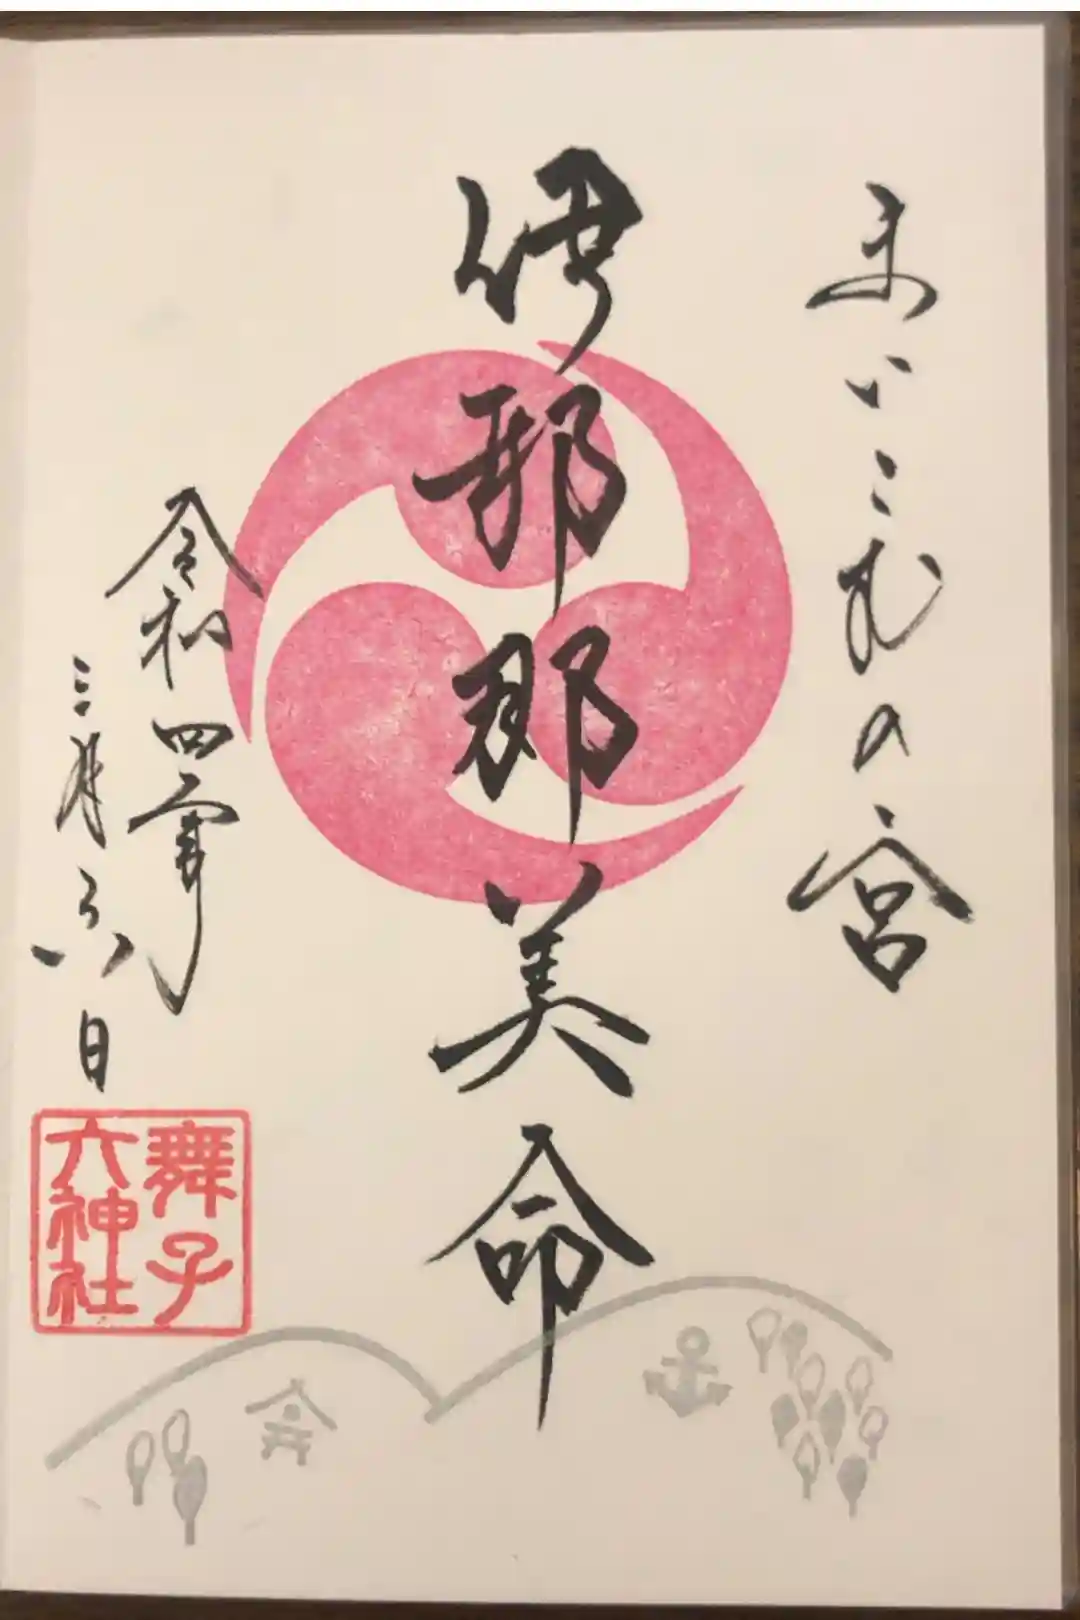 まいこむの宮
伊邪那美命
令和四年
三月六日
舞子
六神社